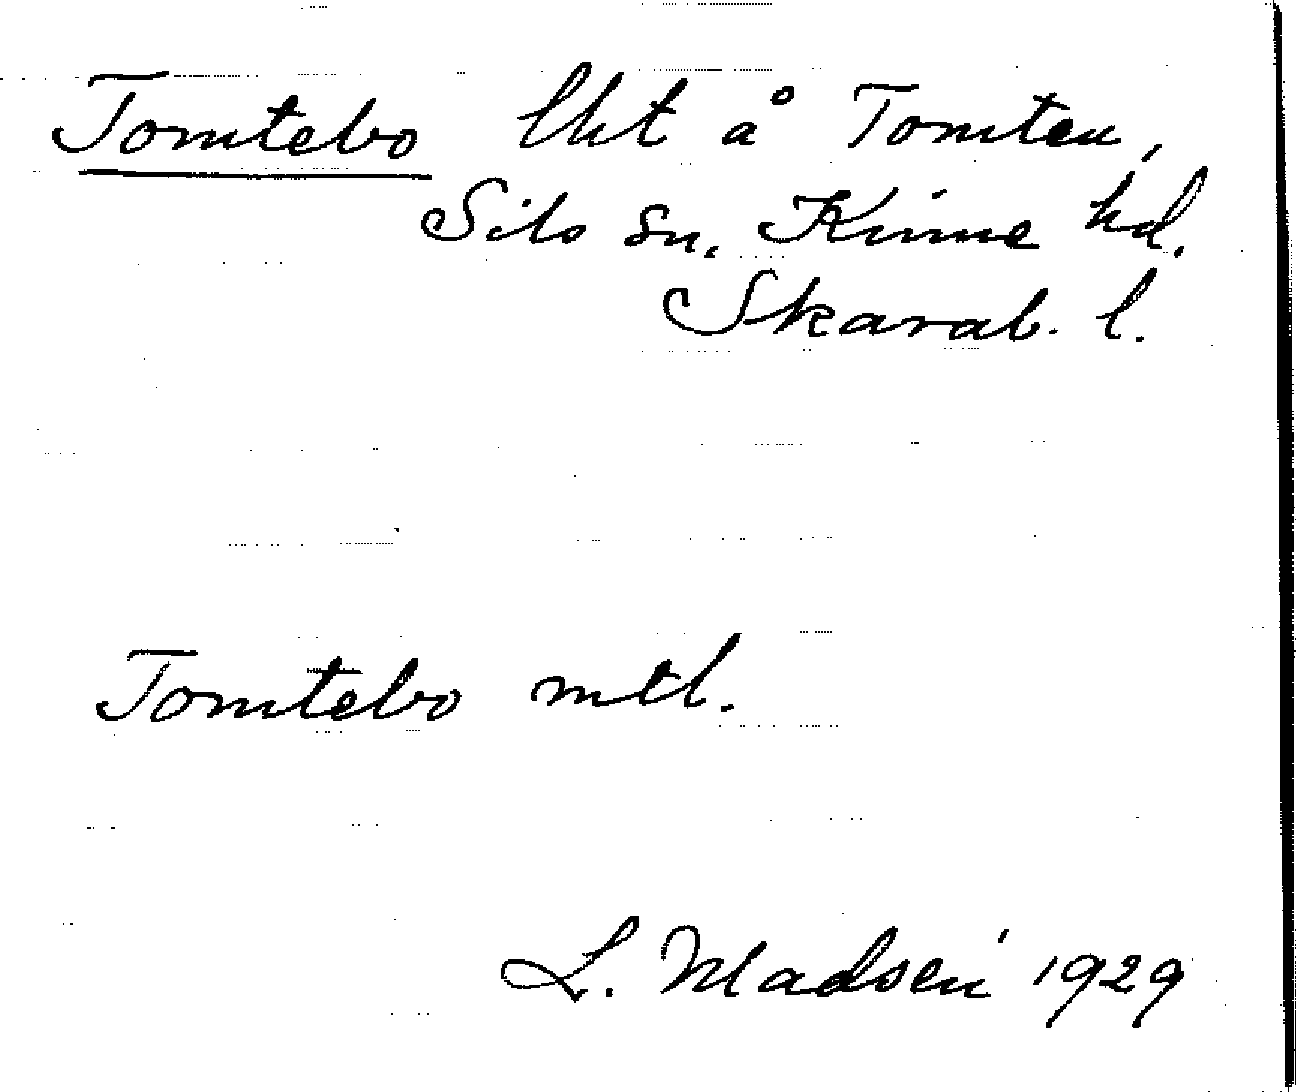 Tomtebo lht å Tomten,
Sils sn. Kinne hd.
Skarab. l.
Tomtebo mtl.
L. Madsén 1929